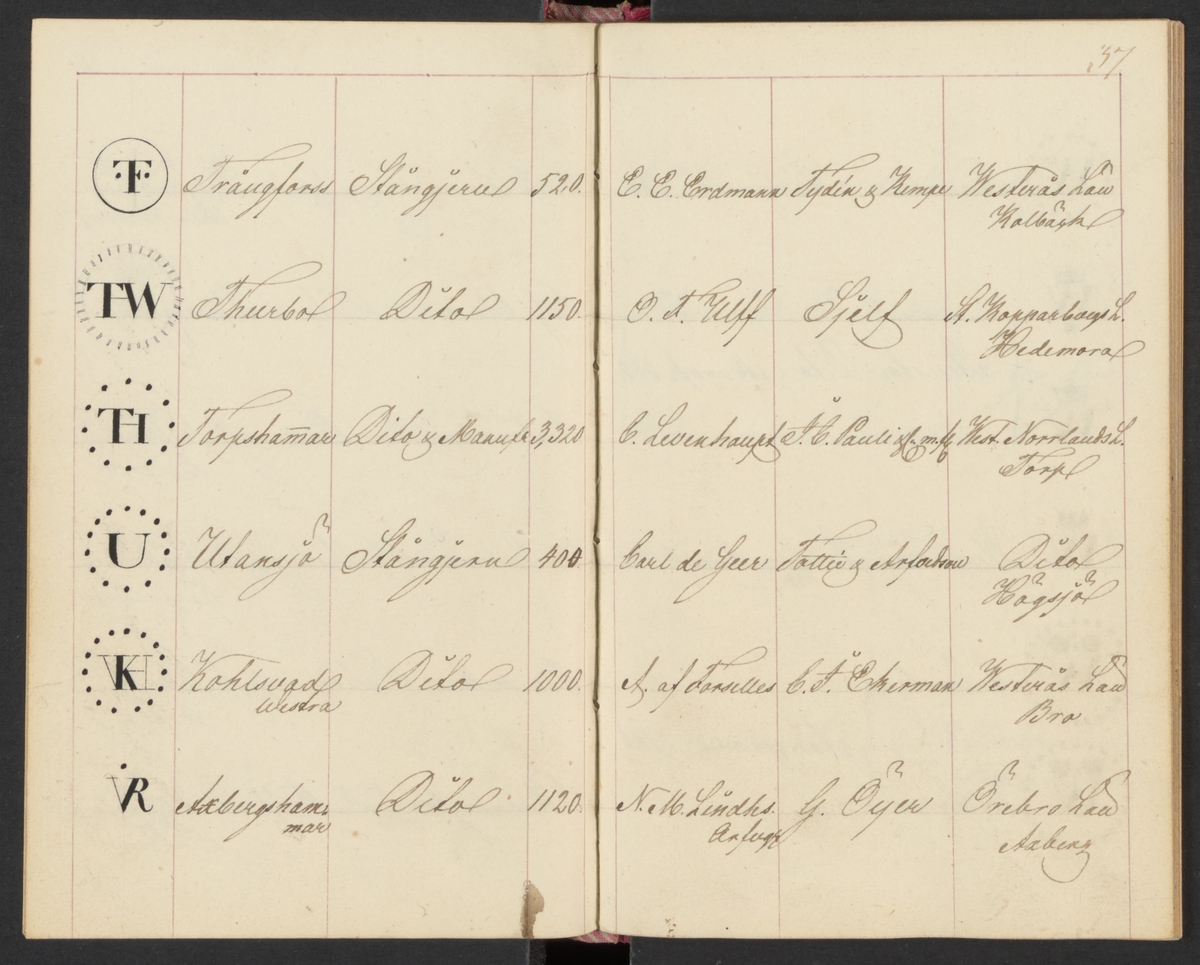 37
·T·F· Trångforss Stångjern 520. E. E. Erdmann Tydén & Kempe Westerås Län
Kolbäck
TW Thurbo Dito 1150. O. F. Ulff Sjelf St. Kopparbergs L.
Hedemora
TH Torpsham̄ar Dito & Manufr 3,320 C. Levenhaupt F. C. Pauli West. Norrlands L.
Torp
U Utansjö Stångjern 400 Carl de Geer Tottie & Arfvedson Dito
Högsjö
VKH Kohlsva Dito 1000. A. af Forselles C. F. Ekerman Westerås Län
Westra Bro
VR Axbergsham Dito 1120. N. M. Lindhs. G. Öyer Örebro Län
mar Arfvgr Axberg